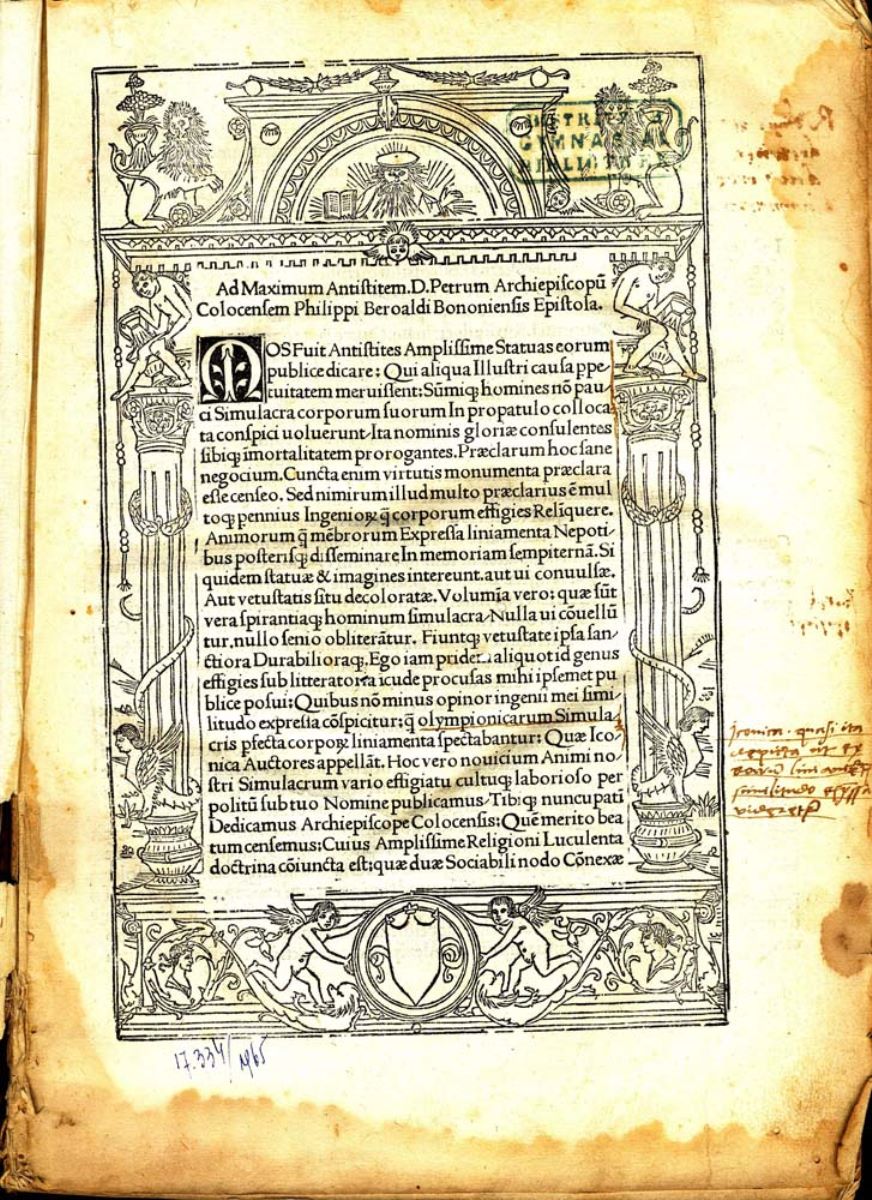 DISTRIKTS
GYMNASIAL
BIBLIOTHEK
Ad Maximum Antistitem.D.Petrum Archiepiscopū
Colocensem Philippi Beroaldi Bononiensis Epistola.
MOS Fuit Antistites Amplissime Statuas eorum
publice dicare: Qui aliqua Illustri causa ppe/
tuitatem meruissent: Sūmiqꝫ homines nō pau/
ci Simulacra corporum suorum In propatulo colloca
ta conspici uoluerunt/Ita nominis gloriæ consulentes
sibiqꝫ īmortalitatem prorogantes. Præclarum hoc sane
negocium. Cuncta enim virtutis monumenta præclara
esse censeo. Sed nimirum illud multo præclarius ē mul
toqꝫ pennius Ingenioꝝ q̄ corporum effigies Relīquere.
Animorum q̄ mēbrorum Expressa liniamenta Nepoti/
bus posterisqꝫ disseminare In memoriam sempiternā. Si
quidem statuæ & imagines intereunt. aut ui conuulsæ.
Aut vetustatis situ decoloratæ. Volumīa vero: quæ sūt
vera spirantiaqꝫ hominum simulacra/Nulla ui cōuellū
tur. nullo senio obliterātur. Fiuntqꝫ vetustate ipsa san/
ctiora Durabilioraqꝫ. Ego iam pridem aliquot id genus
effigies sub litteratoria īcude procusas mihi ipsemet pu
blice posui: Quibus nō minus opinor ingenii mei simi/
litudo expressa cōspicitur: q̄ olympionicarum Simula/
cris pfecta corpoꝝ liniamenta spectabantur: Quæ Ico/
nica Auctores appellāt. Hoc vero nouicium Animi no/
stri Simulacrum vario effigiatu cultuqꝫ laborioso per
politū sub tuo Nomine publicamus/Tibiqꝫ nuncupati
Dedicamus Archiepiscope Colocensis: Quē merito bea
tum censemus: Cuius Amplissime Religioni Luculenta
doctrina cōiuncta est: quæ duæ Sociabili nodo Cōnexæ
Iconica. quasi ita
similitudo
17.334/